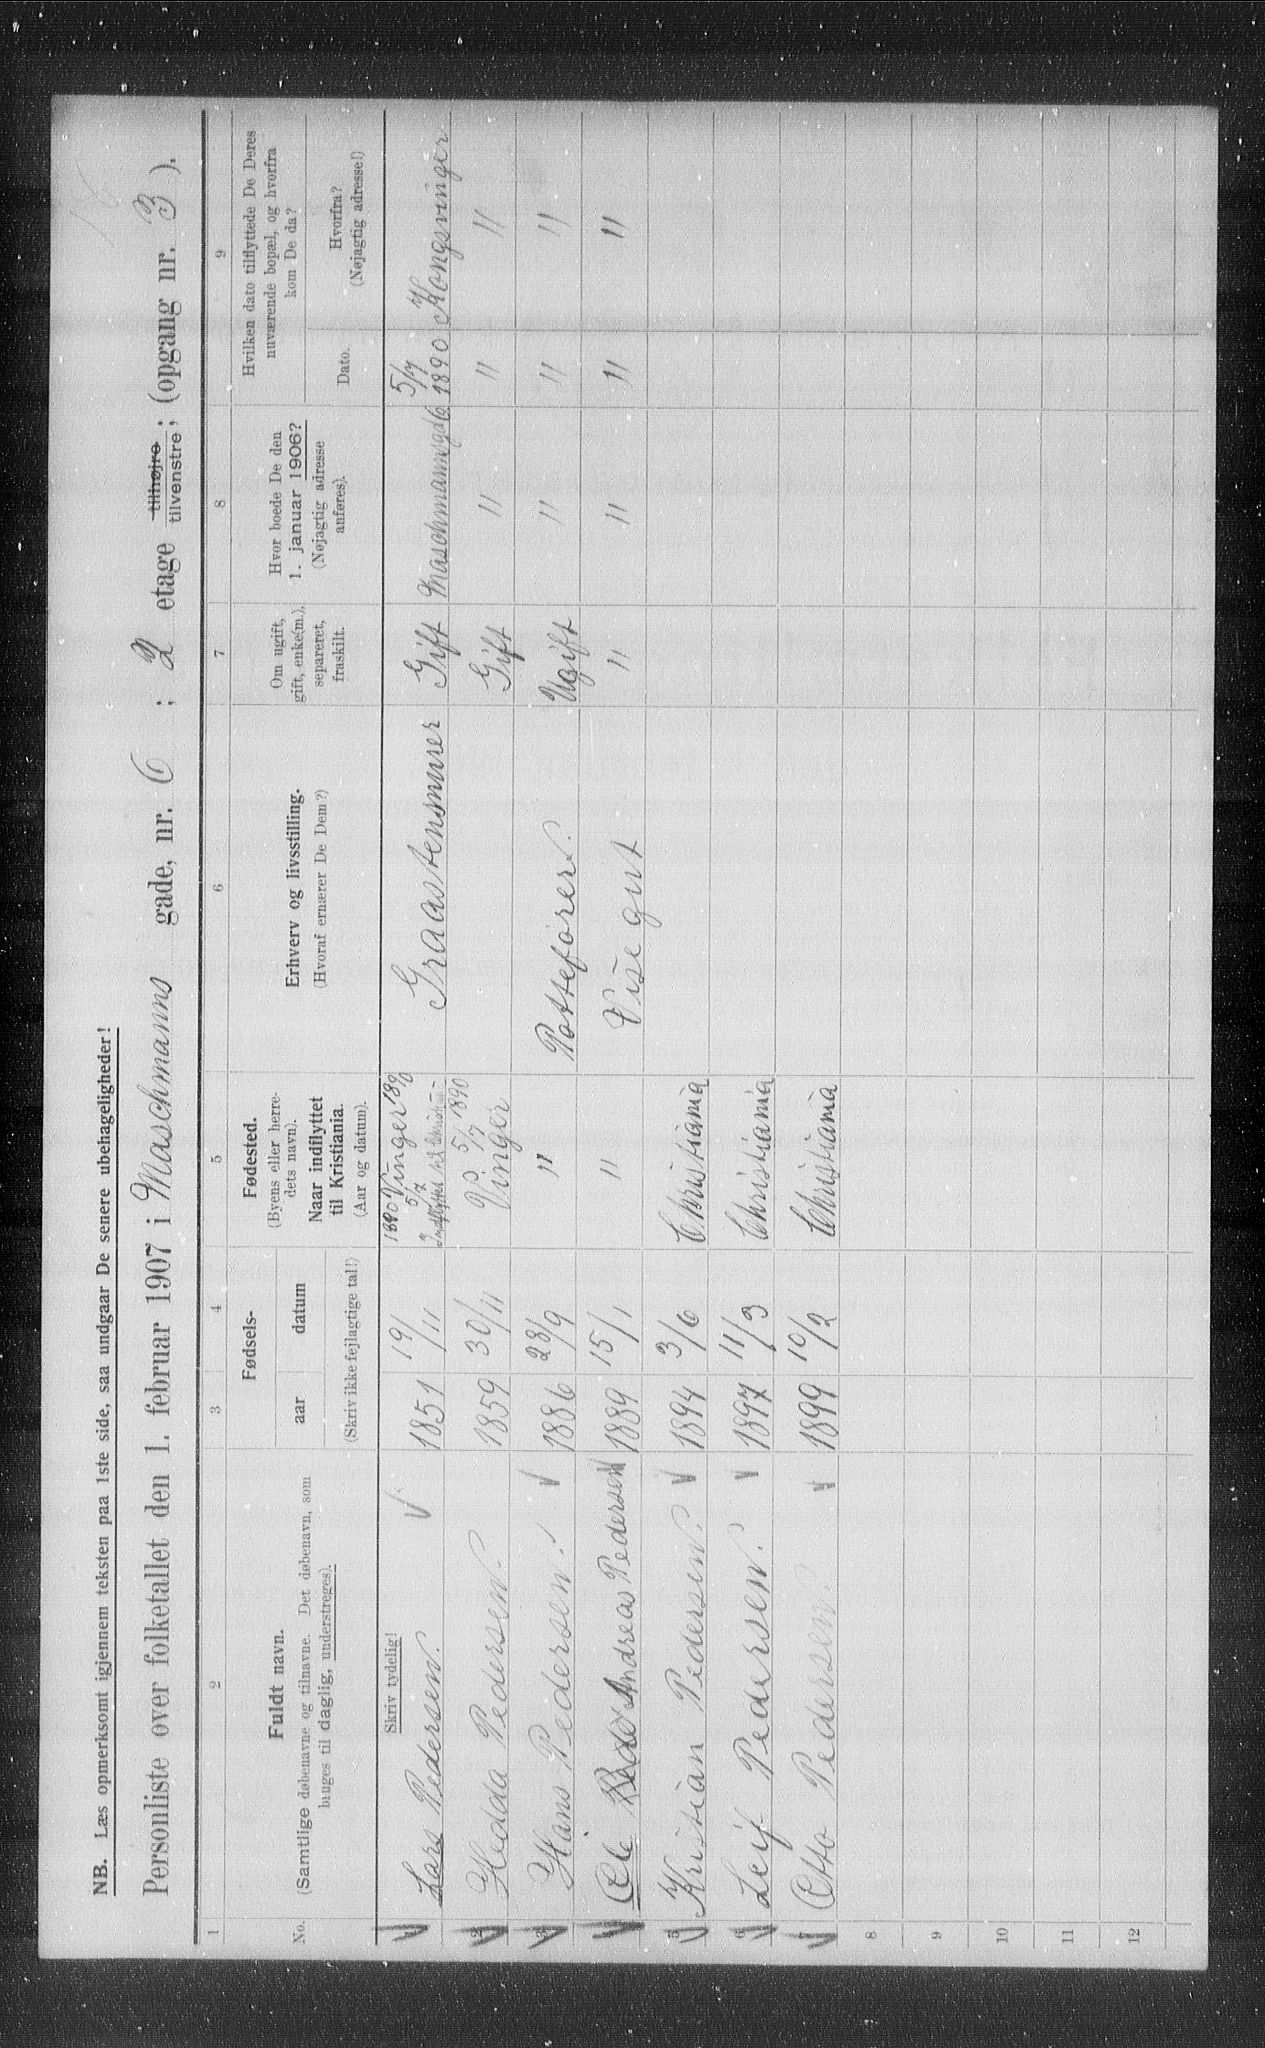 NB. Læs opmerksomt igjennem teksten paa 1ste side, saa undgaar De senere ubehageligheder!
Personliste over folketallet den 1. februar 1907 i Maschmanns gade, nr. 6; 2 etage tilhøjre tilvenstre; (opgang nr. 3).
1 2 3 4 5 6 7 8 9
No.
Fuldt navn.
(Samtlige døbenavne og tilnavne. Det døbenavn, som
bruges til daglig, understreges).
Fødsels-
aar datum
(Skriv ikke fejlagtige tal!)
Fødested.
(Byens eller herre-
dets navn).
Naar indflyttet
til Kristiania.
(Aar og datum).
Erhverv og livsstilling.
(Hvoraf ernærer De Dem?)
Om ugift,
gift, enke(m.),
separeret,
fraskilt.
Hvor boede De den
1. januar 1906?
(Nøjagtig adresse
anføres).
Hvilken dato tilflyttede De Deres
nuværende bopæl, og hvorfra
kom De da?
Dato.
Hvorfra?
(Nøjagtig adresse!)
Skriv tydelig!
1 Lars Pedersen. 1851 19/11 Vinger 5/7 1890 Graastensmurer Gift Maschmannsgd 6 5/7 1890 Kongsvinger
2 Hedda Pedersen. 1859 30/11 Vinger 5/7 1890 Gift " " "
3 Hans Pedersen. 1886 28/9 " Potteforer. Ugift " " "
Ole Andreas Pedersen 1889 15/1 " Visegut " " " "
5 Kristian Pedersen. 1894 3/6 Christiania
6 Leif Pedersen. 1897 11/3 Christiania
7 Otto Pedersen. 1899 10/2 Christiania
8
9
10
11
12